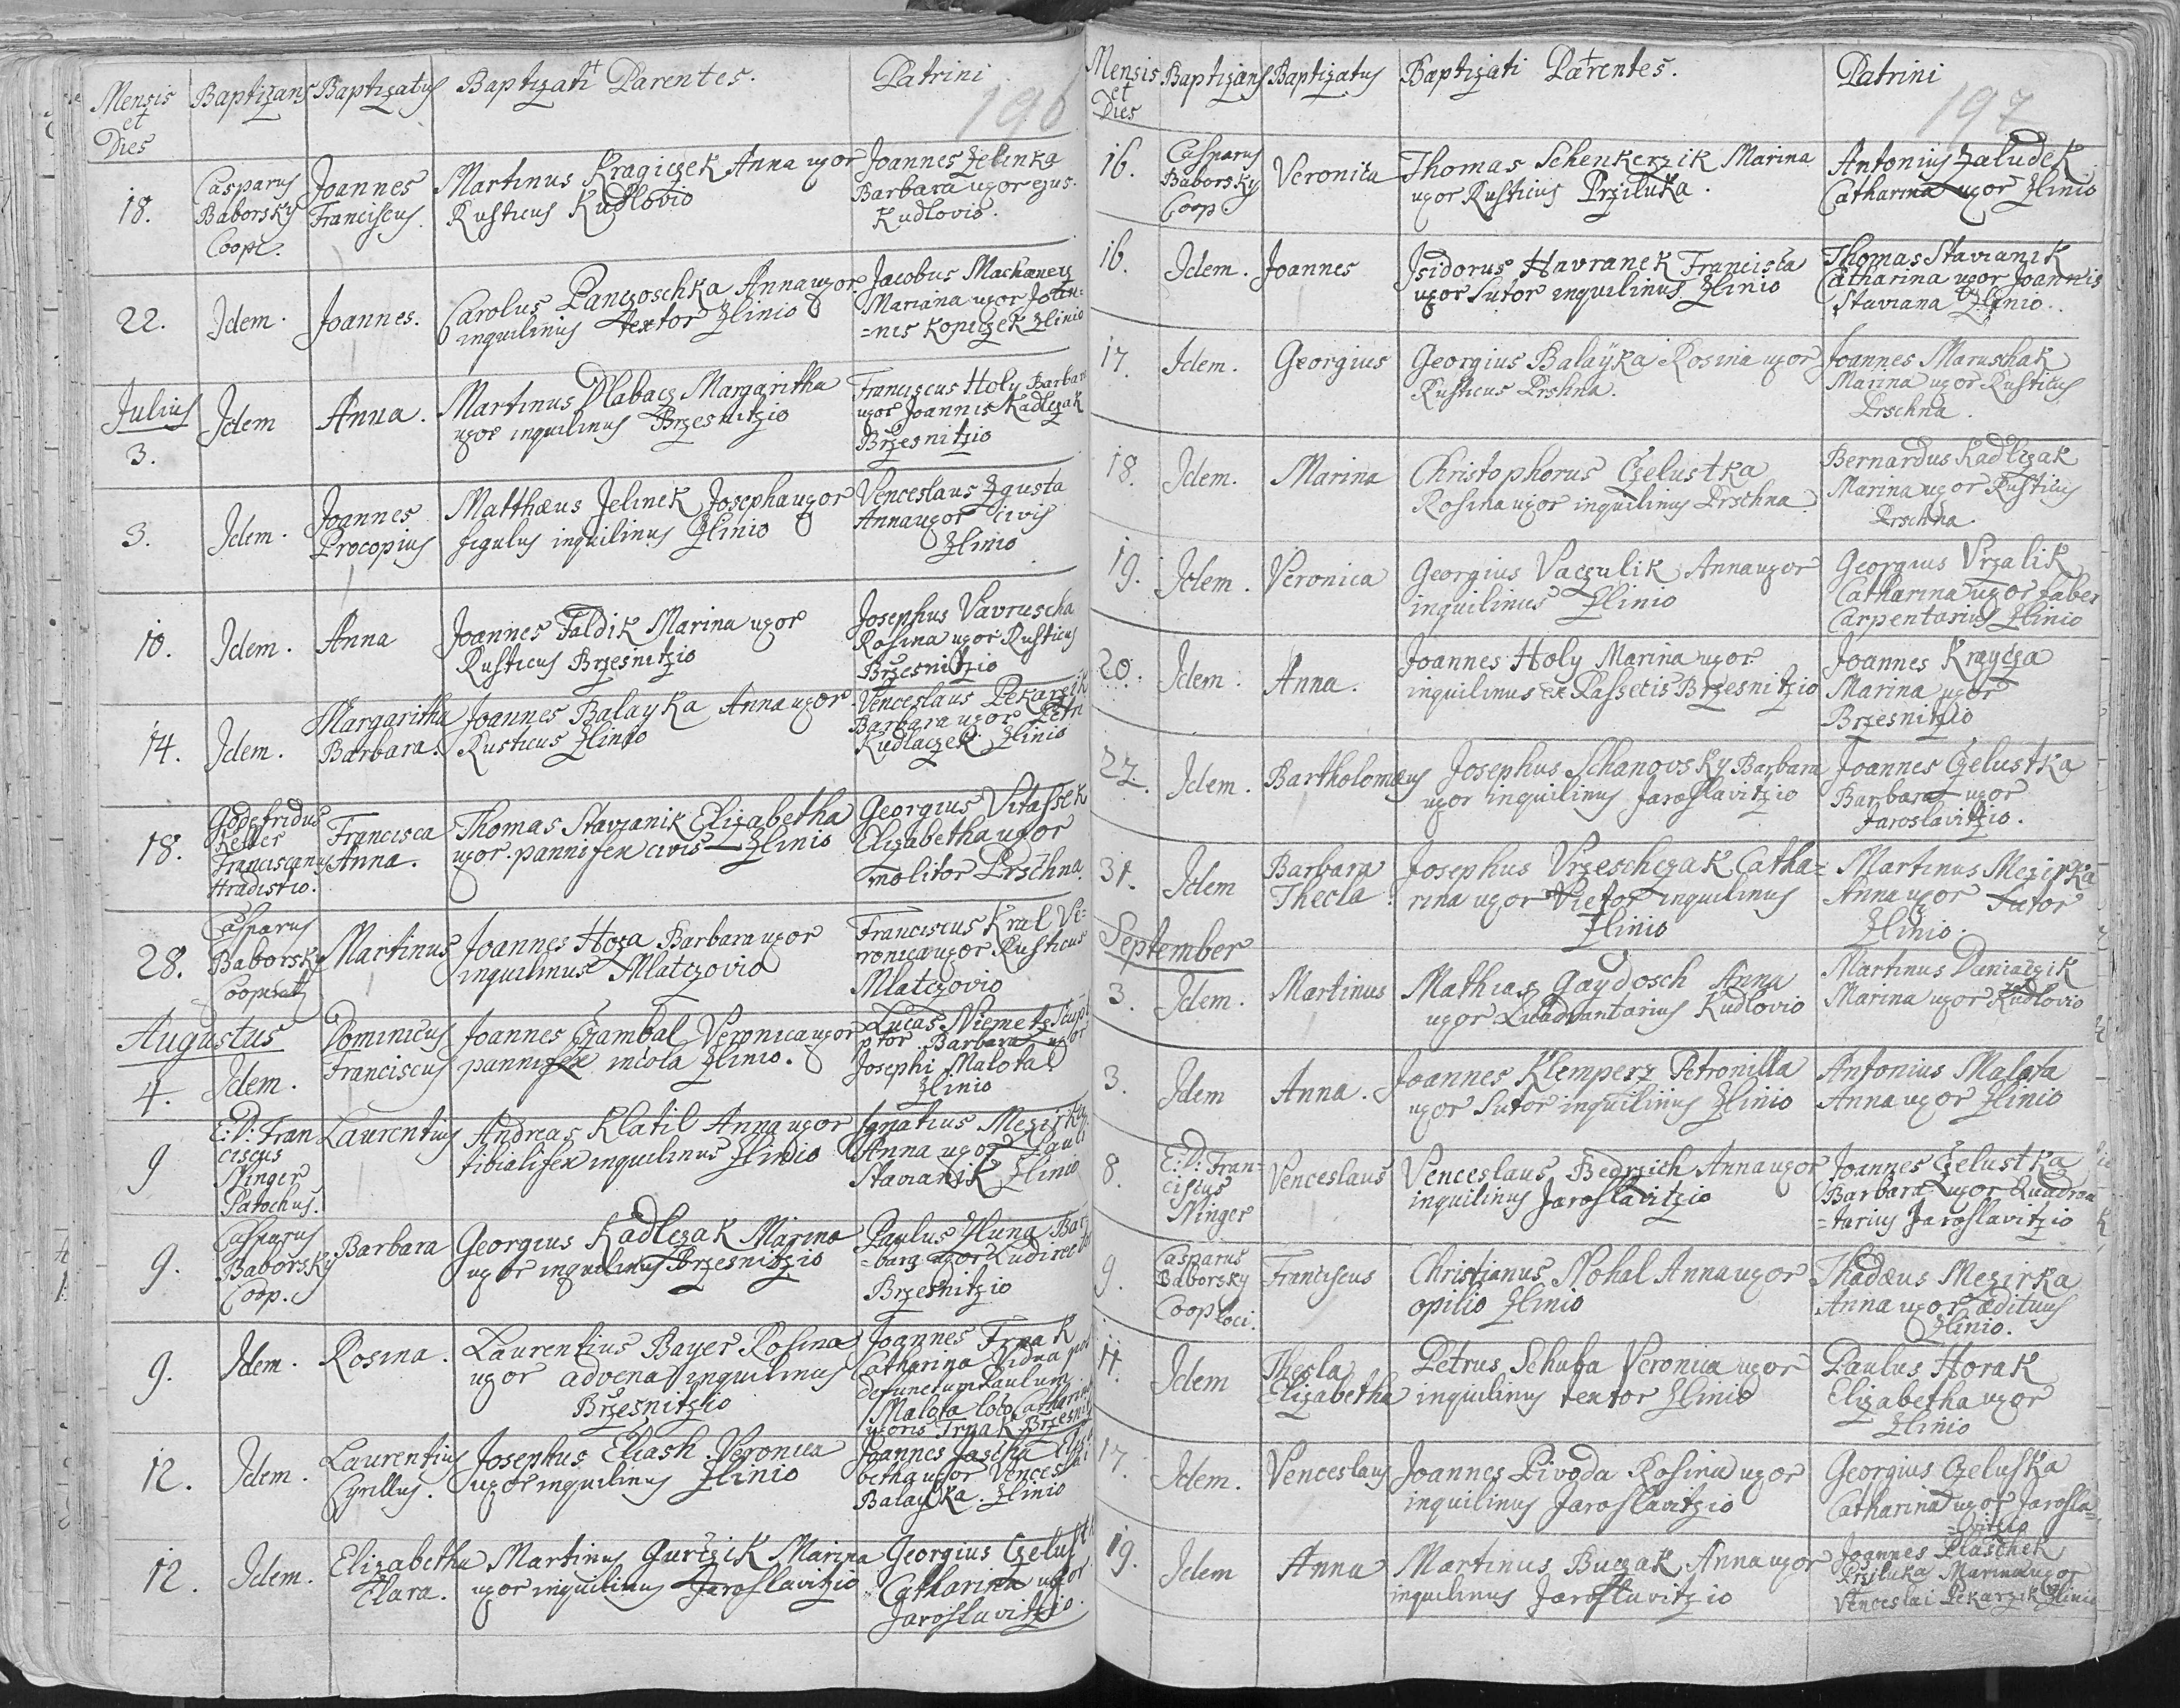 Mensis et Dies Baptizans Baptizatus Baptizati Parentes. Patrini
196
18. Casparus Baborsky Coope. Joannes Franciscus. Martinus Kragiczek Anna uxor Rusticus Kudlovio Joannes Zelinka Barbara uxor ejus. Kudlovio.
22. Idem. Joannes. Carolus Panczoschka Anna uxor inquilinus textor Zlinio Jacobus Machanetz Mariana uxor Joan=nis Kopeczek Zlinio
Julius
3. Idem Anna. Martinus Dlabacz Margaritha uxor inquilinus Brzesnitzio Franciscus Holy Barbara uxor Joannis Kadlczak Brzesnitzio
3. Idem. Joannes Procopius Matthæus Jelinek Josepha uxor figulus inquilinus Zlinio Venceslaus Zgusta Anna uxor civis Zlinio
10. Idem. Anna Joannes Faldik Marina uxor Rusticus Brzesnitzio Josephus Vavruscha Rosina uxor Rusticus Brzesnitzio
14. Idem. Margaritha Barbara. Joannes Balayka Anna uxor Rusticus Zlinio Venceslaus Pekarzik Barbara uxor Petri Kudlaczek Zlinio
18. Godefridus Keller Franciscanus Hradistio. Francisca Anna. Thomas Stavianik Elizabetha uxor pannifex civis Zlinio Georgius Vitassek Elizabetha uxor molitor Prschna.
28. Casparus Baborsky Cooperat Martinus Joannes Hoza Barbara uxor inquilinus Mlatczovio Franciscus Kral Ve=ronica uxor Rusticus Mlatczovio
Augustus
4. Idem. Dominicus Franciscus Joannes Czambal Veronica uxor pannifex incola Zlinio. Lucas Niemetz Sculptor Barbara uxor Josephi Malota Zlinio
9 E: D: Franciscus Ninger Parochus. Laurentius Andreas Klatil Anna uxor tibialifex inquilinus Zlinio Ignatius Mezirka Anna uxor Pauli Stavianik Zlinio
9. Casparus Baborsky Coop. Barbara Georgius Kadlczak Marina uxor inquilinus Brzesnitzio Paulus Hluna Bar=bara uxor Ludirector Brzesnitzio
9. Idem. Rosina. Laurentius Bayer Rosina uxor advena inquilinus Brzesnitzio Joannes Trnak Catharina vidua post defunctum Paulum Malota loco Catharina uxoris Trnak Brzesnitz
12. Idem. Laurentius Cyrillus. Josephus Eliash Veronica uxor inquilinus Zlinio Joannes Jascha Elisabetha uxor Venceslai Balayka. Zlinio
12. Idem. Elizabetha Clara. Martinus Gurczik Marina uxor inquilinus Jaroslavitzio Georgius Czelustk Catharina uxor Jaroslavitzio.
Mensis et Dies Baptizans Baptizatus Baptizati Parentes. Patrini
197
16. Casparus Baborsky Coop. Veronica Thomas Schenkerzik Marina uxor Rusticus Prziluka. Antonius Zaludek Catharina uxor Zlinio
16. Idem. Joannes Isidorus Havranek Francisca uxor Sutor inquilinus Zlinio Thomas Stavianik Catharina uxor Joannis Staviana Zlinio.
17. Idem. Georgius Georgius Balayka Rosina uxor Rusticus Prshna. Joannes Maruschak Marina uxor Rusticus Prschna.
18. Idem. Marina Christophorus Czelustka Rosina uxor inquilinus Prschna. Bernardus Kadlczak Marina uxor Rusticus Prschna.
19. Idem. Veronica Georgius Vaczulik Anna uxor inquilinus Zlinio Georgius Vrzalik Catharina uxor faber Carpentarius Zlinio
20. Idem. Anna. Joannes Holy Marina uxor inquilinus ex Passecis Brzesnitzio Joannes Kraycza Marina uxor Brzesnitzio
27. Idem. Bartholomæus Josephus Schanovsky Barbara uxor inquilinus Jaroslavitzio Joannes Czelustka Barbara uxor Jaroslavitzio.
31. Idem Barbara Thecla. Josephus Vrzeschczak Catha=rina uxor Vietor inquilinus Zlinio Martinus Mezirka Anna uxor Sutor Zlinio.
September
3. Idem. Martinus Mathias Gaydosch Anna uxor Quadrantarius Kudlovio Martinus Daniaczik Marina uxor Kudlovio
3. Idem Anna. Joannes Klemperz Petronilla uxor Sutor inquilinus Zlinio Antonius Malota Anna uxor Zlinio
8. E: D: Fran=ciscus Ninger Venceslaus Venceslaus Bedrzich Anna uxor inquilinus Jaroslavitzio Joannes Czelustka Barbara uxor Quadran=tarius Jaroslavitzio
9. Casparus Baborsky Coop loci. Franciscus Christianus Nohal Anna uxor opilio Zlinio Thadæus Mezirka Anna uxor ædituus Zlinio.
11. Idem Thecla Elizabetha Petrus Schuba Veronica uxor inquilinus textor Zlinio Paulus Horak Elizabetha uxor Zlinio
17. Idem. Venceslaus Joannes Pivoda Rosina uxor inquilinus Jaroslavitzio Georgius Czeluska Catharina uxor Jarosla=vitzio
19. Idem Anna Martinus Buczak Anna uxor inquilinus Jaroslavitzio Joannes Plaschek Prziluka Marina uxor Venceslai Pekarzik Zlinio